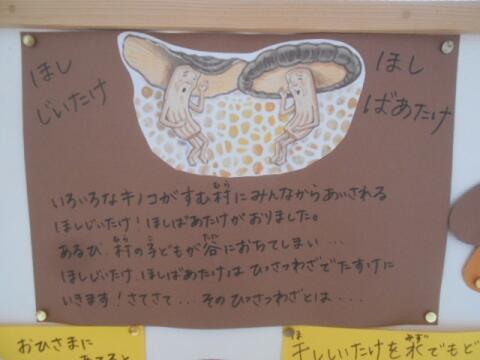 ほし
じいたけ
ほし
ばあたけ
いろいろなキノコがすむ村にみんなからあいされる
むら
ほしじいたけ！ほしばあたけがおりました。
あるひ、村の子どもが谷におちてしまい…
むら こ たに
ほしじいたけ、ほしばあたけは ひっさつわざでたすけに
いきます！さてさて…そのひっさつわざとは...
おひさまに
ほ みず
干ししいたけを水でもど